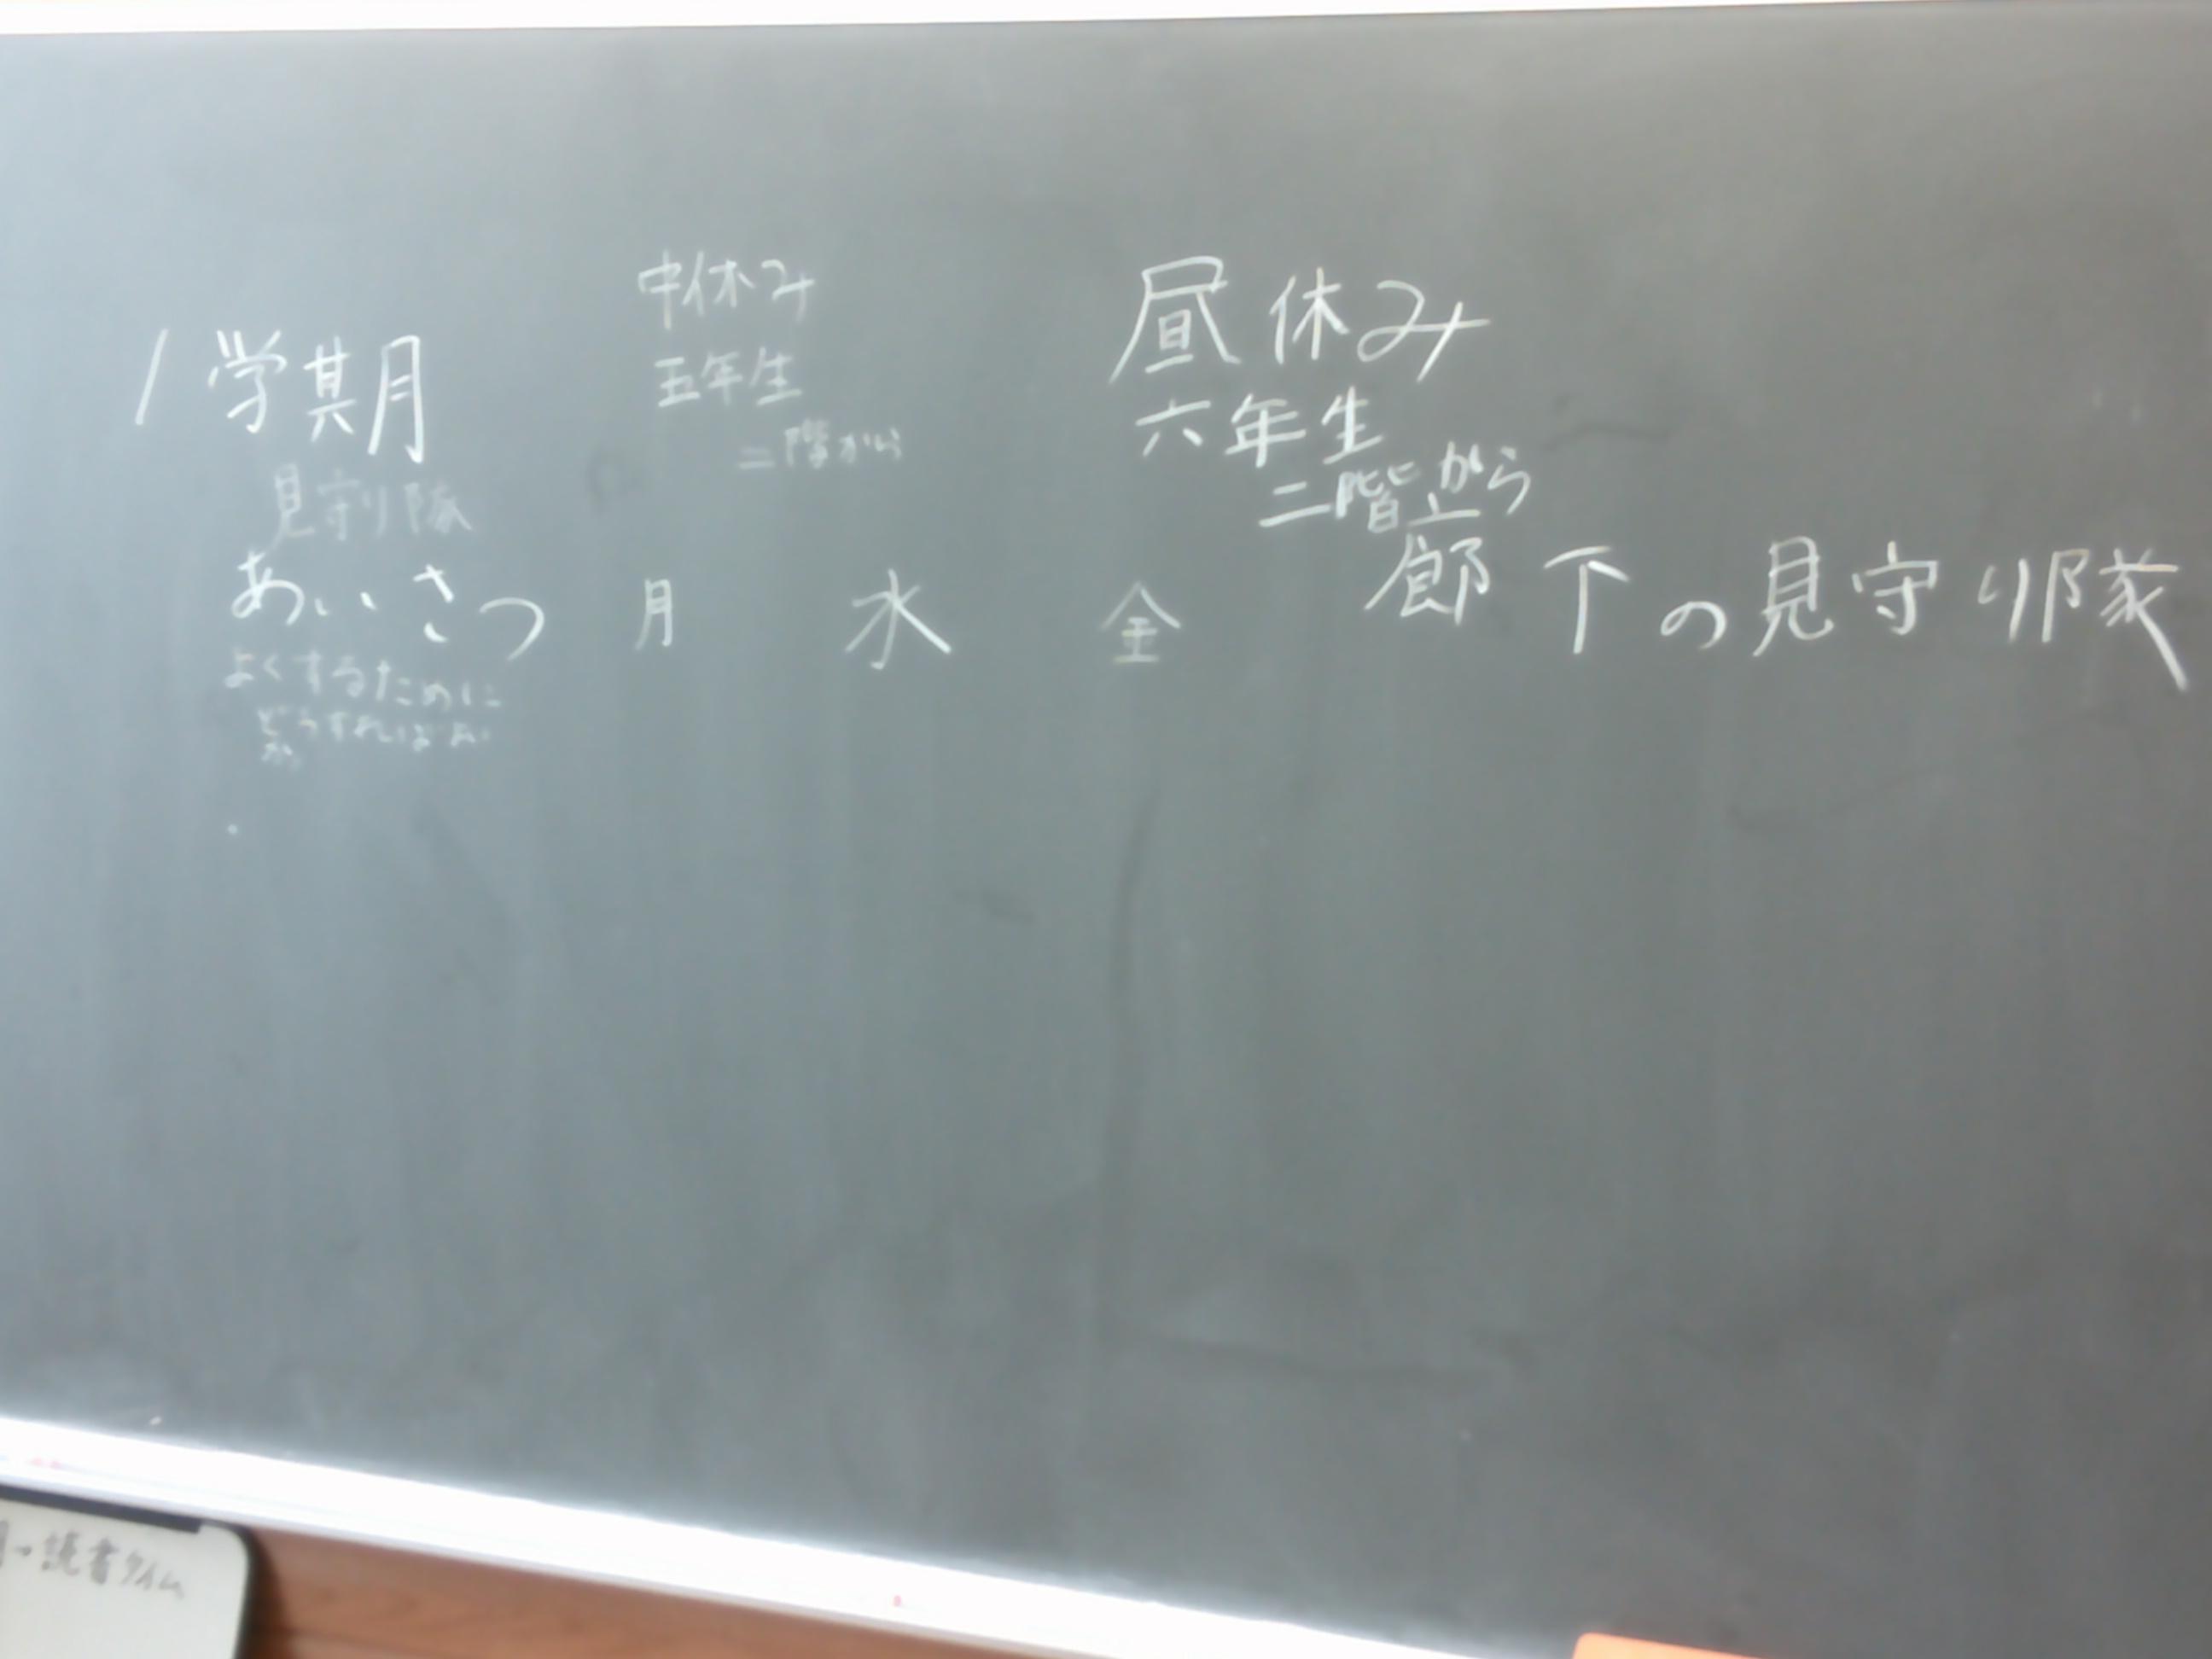 1学期
見守り隊
あいさつ 月 水 金
よくするために
どうすればよい
か
中休み
五年生
二階から
昼休み
六年生
二階から
廊下の見守り隊
→読書タイム